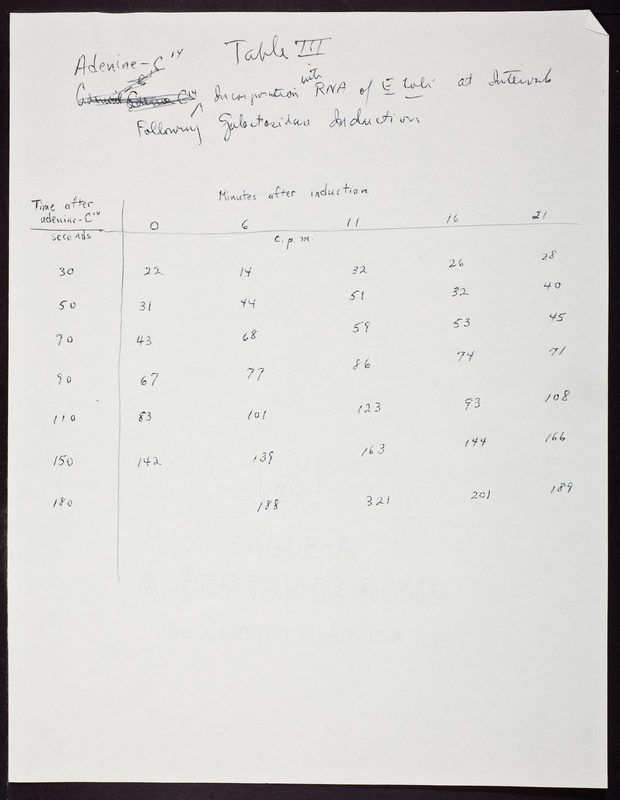 Table III
Adenine-C¹⁴
with
Incorporation RNA of E Coli at Intervals
Following Galactosidase Induction
Time after Minutes after induction
adenine-C¹⁴ 0 6 11 16 21
seconds c.p.m.
30 22 14 32 26 28
50 31 44 51 32 40
70 43 68 59 53 45
90 67 77 86 74 71
110 83 101 123 93 108
150 142 139 163 144 166
180 188 321 201 189
EAGLE-A
ACCEPTANCE BOND